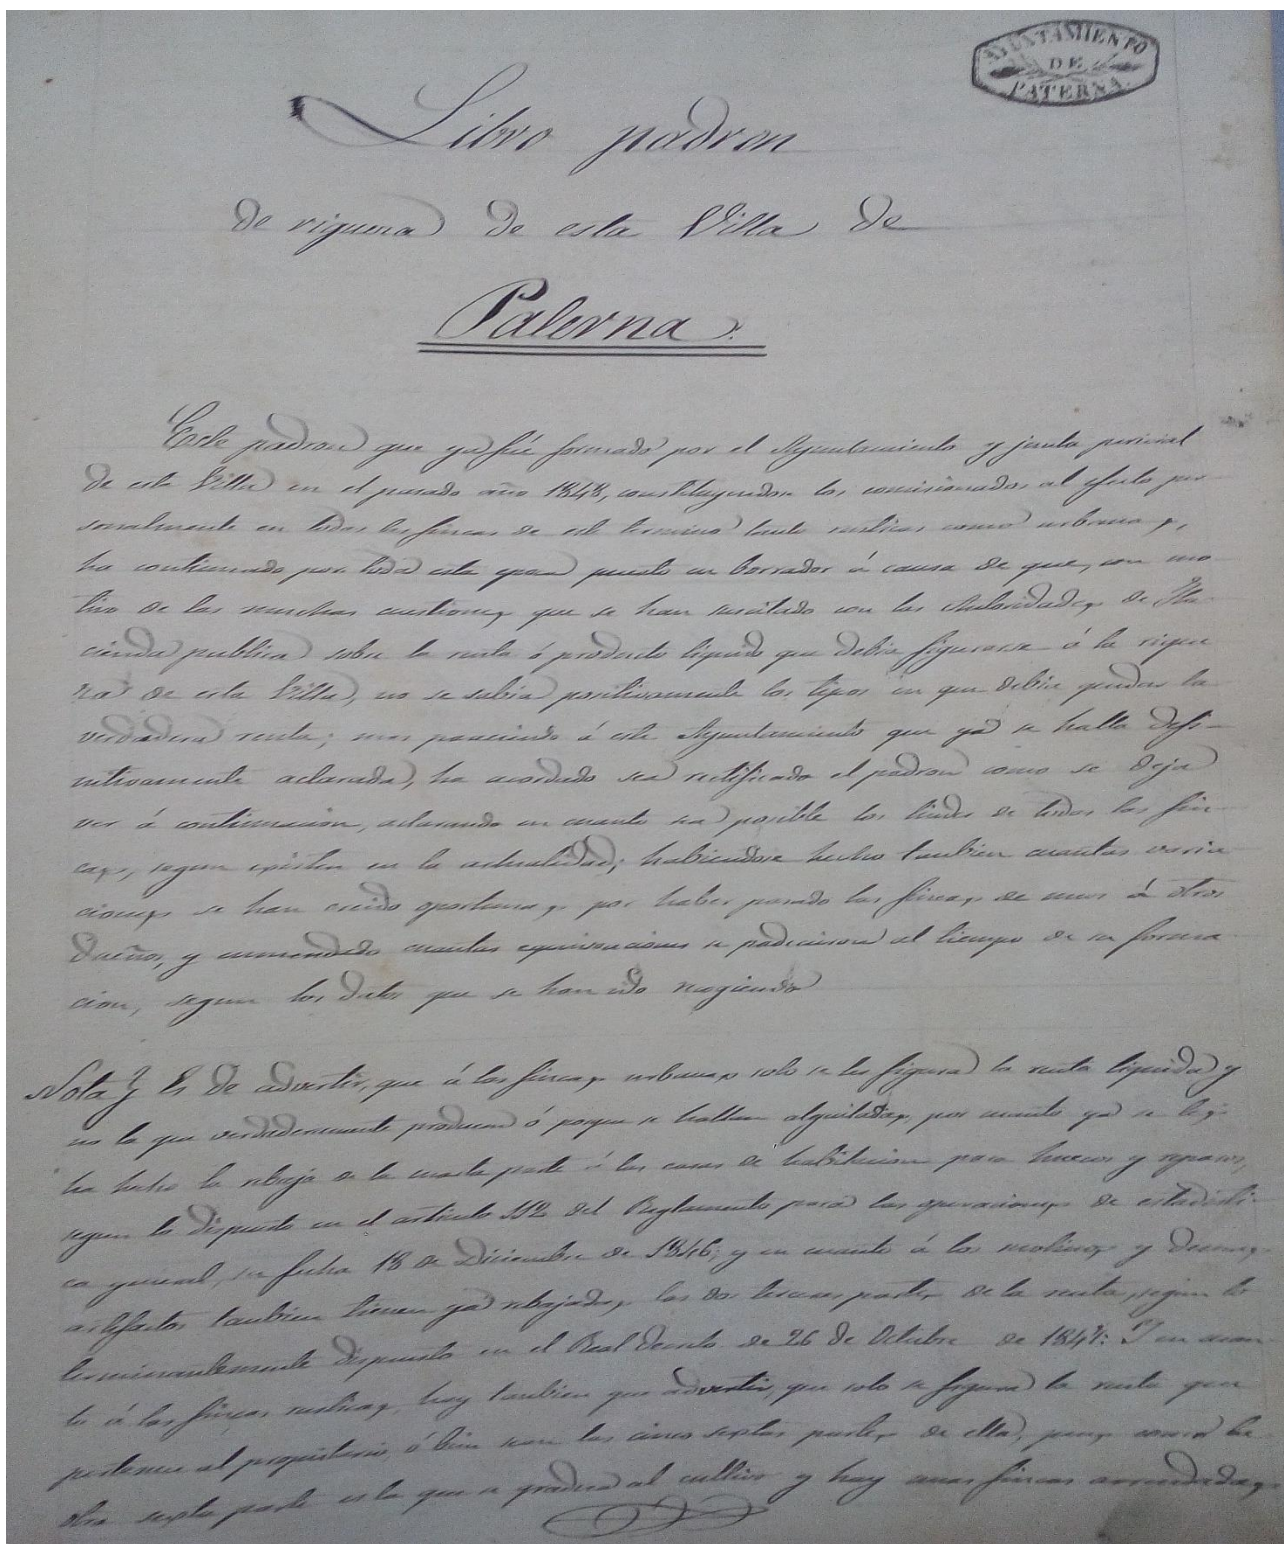 AYUNTAMIENTO
DE
PATERNA.
Libro padron
de riqueza de esta Villa de
Paterna.
Este padron que ya fué formado por el Ayuntamiento y junta pericial
de esta Villa en el pasado año 1848, constituyendose los comisionados al efecto per
sonalmente en todas las fincas de este termino tanto rusticas como urbanas,
ha continuado por toda esta epoca puesto en borrador á causa de que, con mo
tivo de las muchas cuestiones que se han suscitado con las Autoridades de Ha-
cienda publica sobre la renta ó producto liquido que debia figurarse á la rique
za de esta Villa, no se sabia positivamente los tipos en que debia quedar la
verdadera renta; mas pareciendo á este Ayuntamiento que ya se halla defi-
nitivamente aclarada, ha acordado sea rectificado el padron como se deja
ver á continuacion, aclarando en cuanto sea posible los lindes de todas las fin
cas, segun existen en la actualidad; habiendose hecho tambien cuantas varia
ciones se han creido oportunas por haber pasado las fincas de unos á otros
dueños, y enmendado cuantas equivocaciones se padecieron al tiempo de su forma
cion, segun los datos que se han ido recogiendo
Nota Es de advertir, que á las fincas urbanas solo se les figura la renta liquida y
no la que verdaderamente producen ó porque se hallan alquiladas, por cuanto ya se les
ha hecho la rebaja de la cuarta parte á las casas de habitacion para huecos y reparos,
segun lo dispuesto en el articulo 112 del Reglamento para las operaciones de estadisti-
ca general, su fecha 18 de Diciembre de 1846; y en cuanto á los molinos y demas
artefactos tambien tienen ya rebajadas las dos terceras partes de la renta, segun lo
terminantemente dispuesto en el Real Decreto de 26 de Octubre de 1847: Y en cuan
to á las fincas rusticas, hay tambien que advertir, que solo se figura la renta que
pertenece al propietario, ó bien sean las cinco sextas partes de ella, pues como la
otra sexta parte es la que se gradua al cultivo y hay unas fincas arrendadas